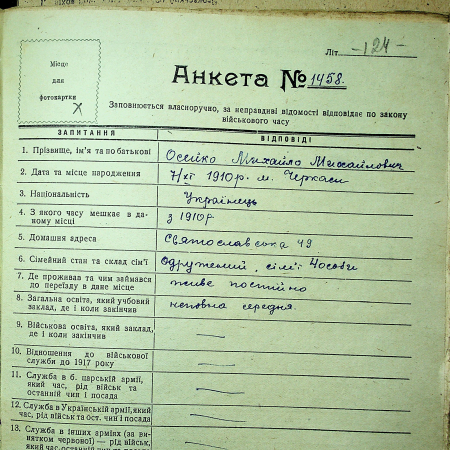 Літ. -124-
Місце
для
фотокартки
Анкета № 1458.
Заповнюється власноручно, за неправдиві відомості відповідає по закону
військового часу
ЗАПИТАННЯ ВІДПОВІДІ
1. Прізвище, ім'я та по батькові Осейко Михайло Михайлович
2. Дата та місце народження 7/XI 1910р. м. Черкаси
3. Національність Українець
4. З якого часу мешкає в да-
ному місці з 1910р
5. Домашня адреса Святославська 49
6. Сімейний стан та склад сім'ї Одружений, сім'ї 4 особи
7. Де проживав та чим займався
до переїзду в дане місце живе постійно
8. Загальна освіта, який учбовий
заклад, де і коли закінчив неповна середня.
9. Військова освіта, який заклад,
де і коли закінчив —
10. Відношення до військової
служби до 1917 року —
11. Служба в б. царській армії,
який час, рід військ та
останній чин і посада —
12. Служба в Українській армії, який
час, рід військ та ост. чин і посада —
13. Служба в інших арміях (за ви-
нятком червоної) — рід військ,